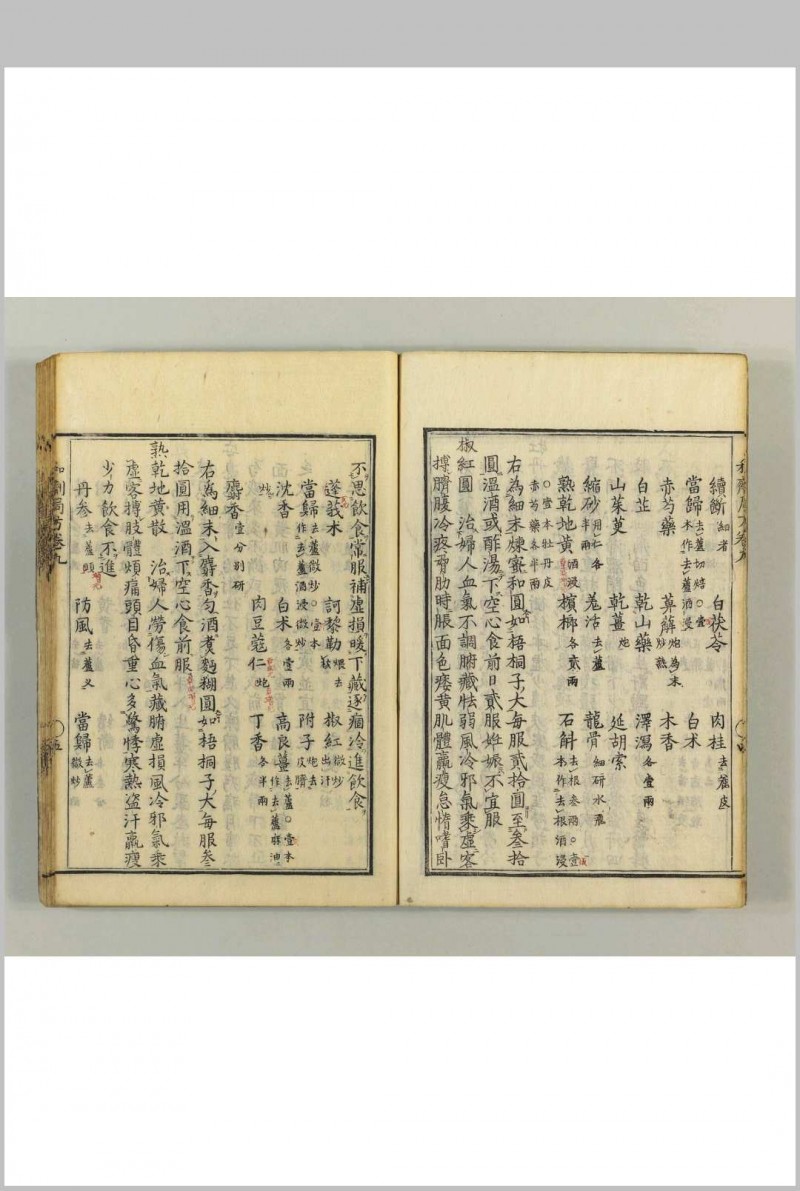 續斷細者 白茯苓 肉桂去麄皮
當歸去蘆切焙○壹本作去蘆酒浸 白朮
赤芍藥 萆薢炮為末炒熟 木香
白芷 乾山藥 澤瀉各壹兩
山茱萸 乾薑炮 延胡索
縮砂用仁各半兩 羗活去蘆 龍骨細研水飛
熟乾地黃酒浸 檳榔各貳兩 石斛去根叁兩○壹本作去根酒浸
○壹本牡丹皮赤芍藥各半兩
右為細末煉蜜和圓如梧桐子大每服貳拾圓至叁拾
圓溫酒或酢湯下空心食前日貳服姙娠不宜服
椒紅圓 治婦人血氣不調腑藏怯弱風冷邪氣乘虛客
搏臍腹冷疼脅肋時脹面色痿黃肌體羸瘦怠惰嗜臥
不思飲食常服補虛損暖下藏逐痼冷進飲食
蓬莪朮 訶黎勒煨去核 椒紅微炒出汗
當歸去蘆微炒○壹本作去蘆酒浸微炒 白朮各壹兩 附子炮去皮臍
沈香 肉豆蔻仁炮 高良薑去蘆○壹本作去蘆麻油炒
丁香各半兩
麝香壹分別研
右為細末入麝香勻酒煮麪糊圓如梧桐子大每服叁
拾圓用溫酒下空心食前服
熟乾地黃散 治婦人勞傷血氣藏腑虛損風冷邪氣乘
虛客搏肢體煩痛頭目昏重心多驚悸寒熱盜汗羸瘦
少力飲食不進
丹參去蘆頭 防風去蘆叉 當歸去蘆微炒
五